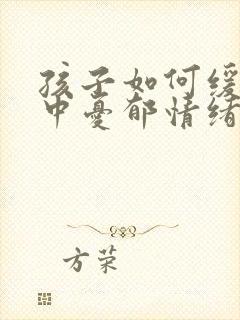 孩子如何缓
中忧郁情绪
方荣